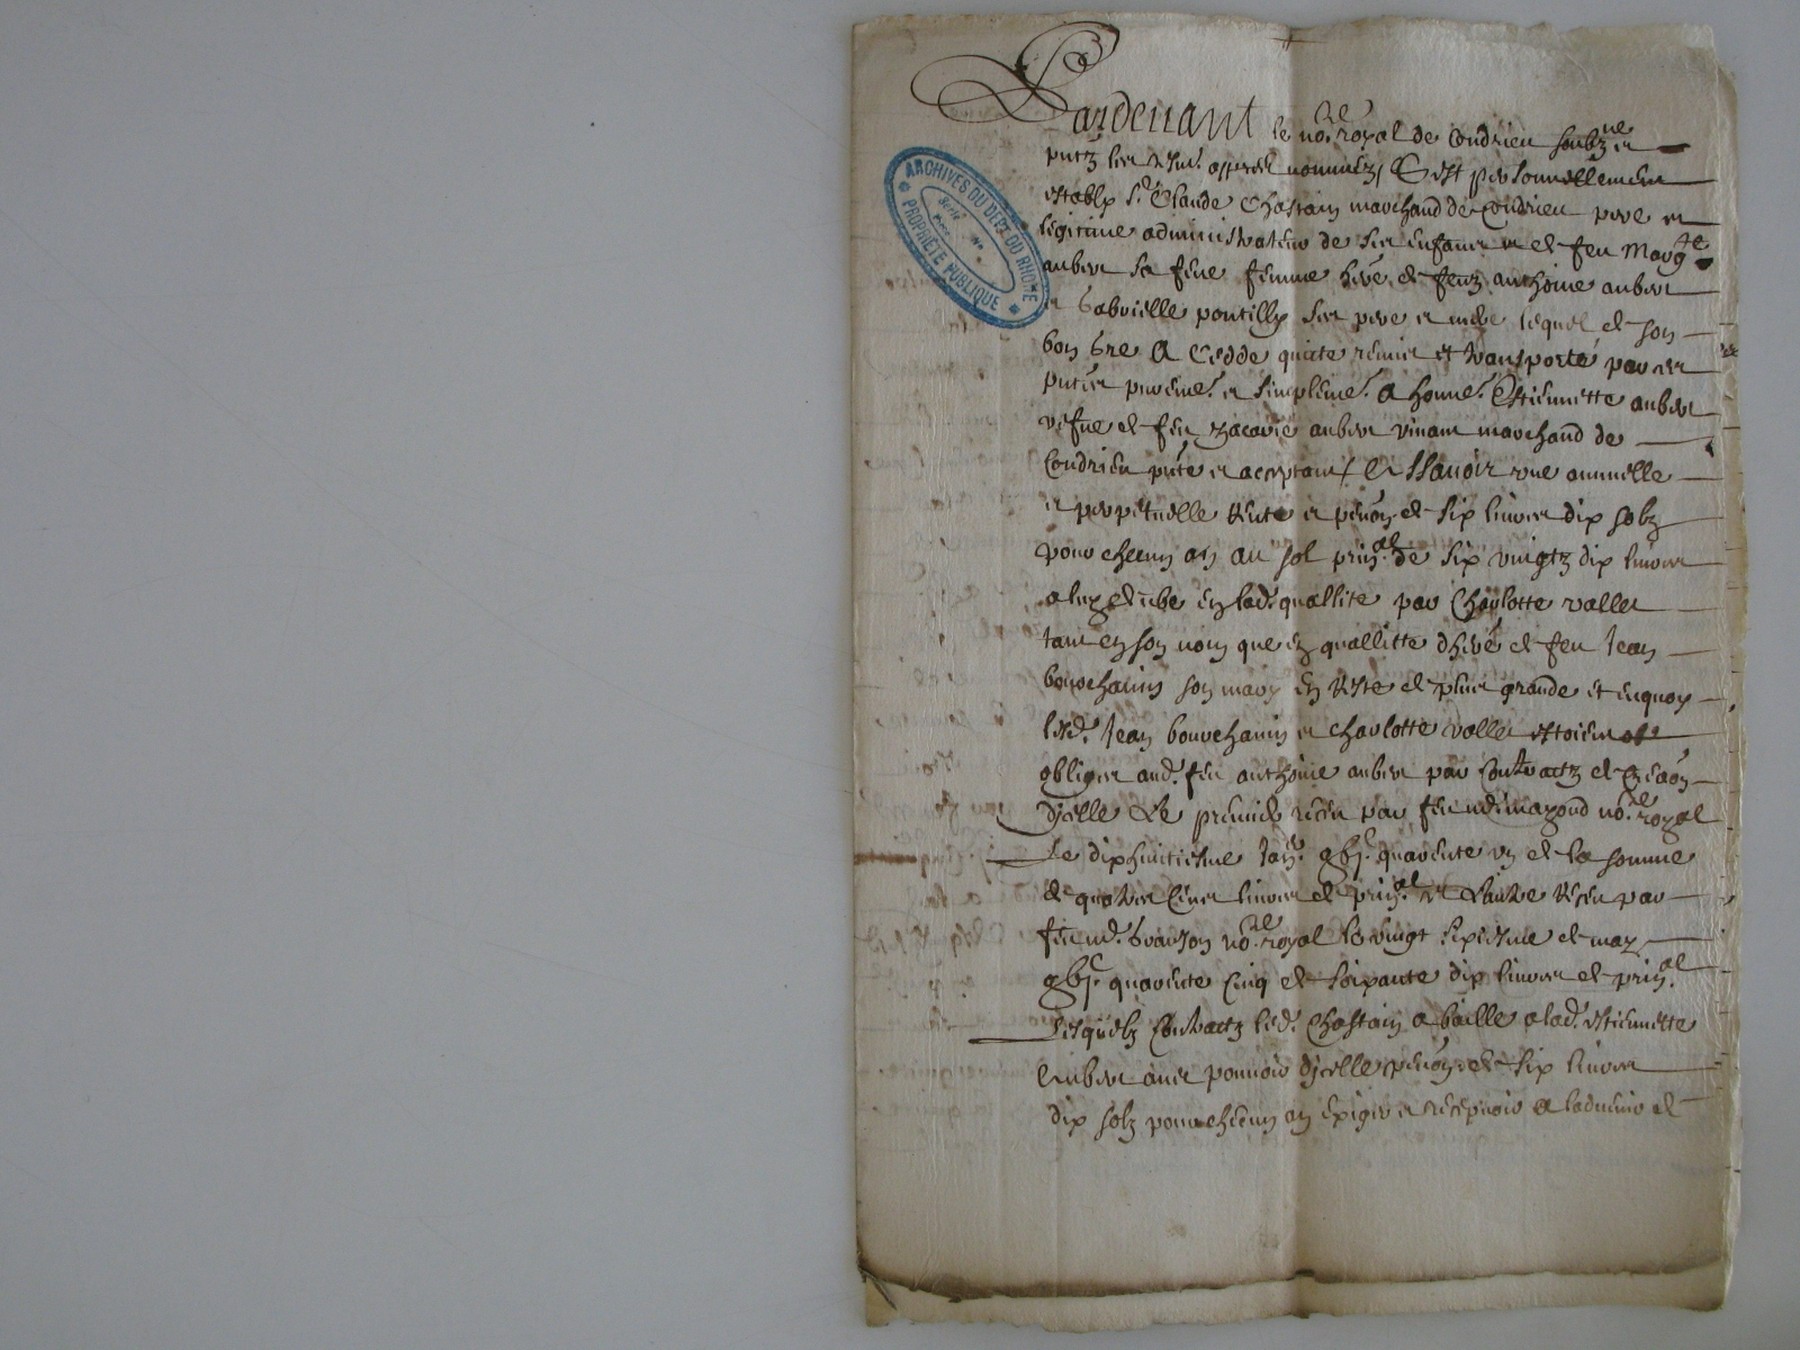 Pardevant le no.re royal de Condrieu soubz.ne et
putz les tesm. appres nommez / C'est personnellement
estably Sr. Claude Chastain marchand de Condrieu pere et
legitime administrateur de ses enfans et de feu Marg.te
aubert sa feue femme here. de feuz anthoine aubert
et Gabrielle pontilly ses pere et mere lequel de son
bon gre A cedde quitte remis et transporte par ces
putes purem.t et simplem.t A honne. Estiennette aubert
vefve de feu zacarie aubert vivant marchand de
Condrieu pnte et acceptant / Et Assavoir une annuelle
et perpetuelle rente et pencon de six livres dix solz
pour chacun an au sol prin.al de six vingtz dix livres
a luy deube en lad. quallite par Charlotte valler
tant en son nom que en quallitte dhere de feu Jean
bourchanin son mary en reste de plus grande et enquoy
lesd. Jean bourchanin et charlotte valler estoient
obliges aud. feu anthoine aubert par Contractz de creaon
dicelle Le premier receu par feu me. mazoud no.re royal
Le dixhuitiesme Jan. gbic. quarente un de la somme
de quatre cens livres de prin.al et Lautre receu par
feu me. branson no.re royal le vingt sixiesme de may
gbic. quarente cinq de soixante dix livres de prin.al
Lesquelz Contractz led. Chastain a baille a lad. estiennette
Aubert avec pouvoir dicelle pencon de six livres
dix solz pour chacun an exiger et recepvoir A ladvenir de
ARCHIVES DU DEPT DU RHONE
PROPRIÉTÉ PUBLIQUE
Série
No